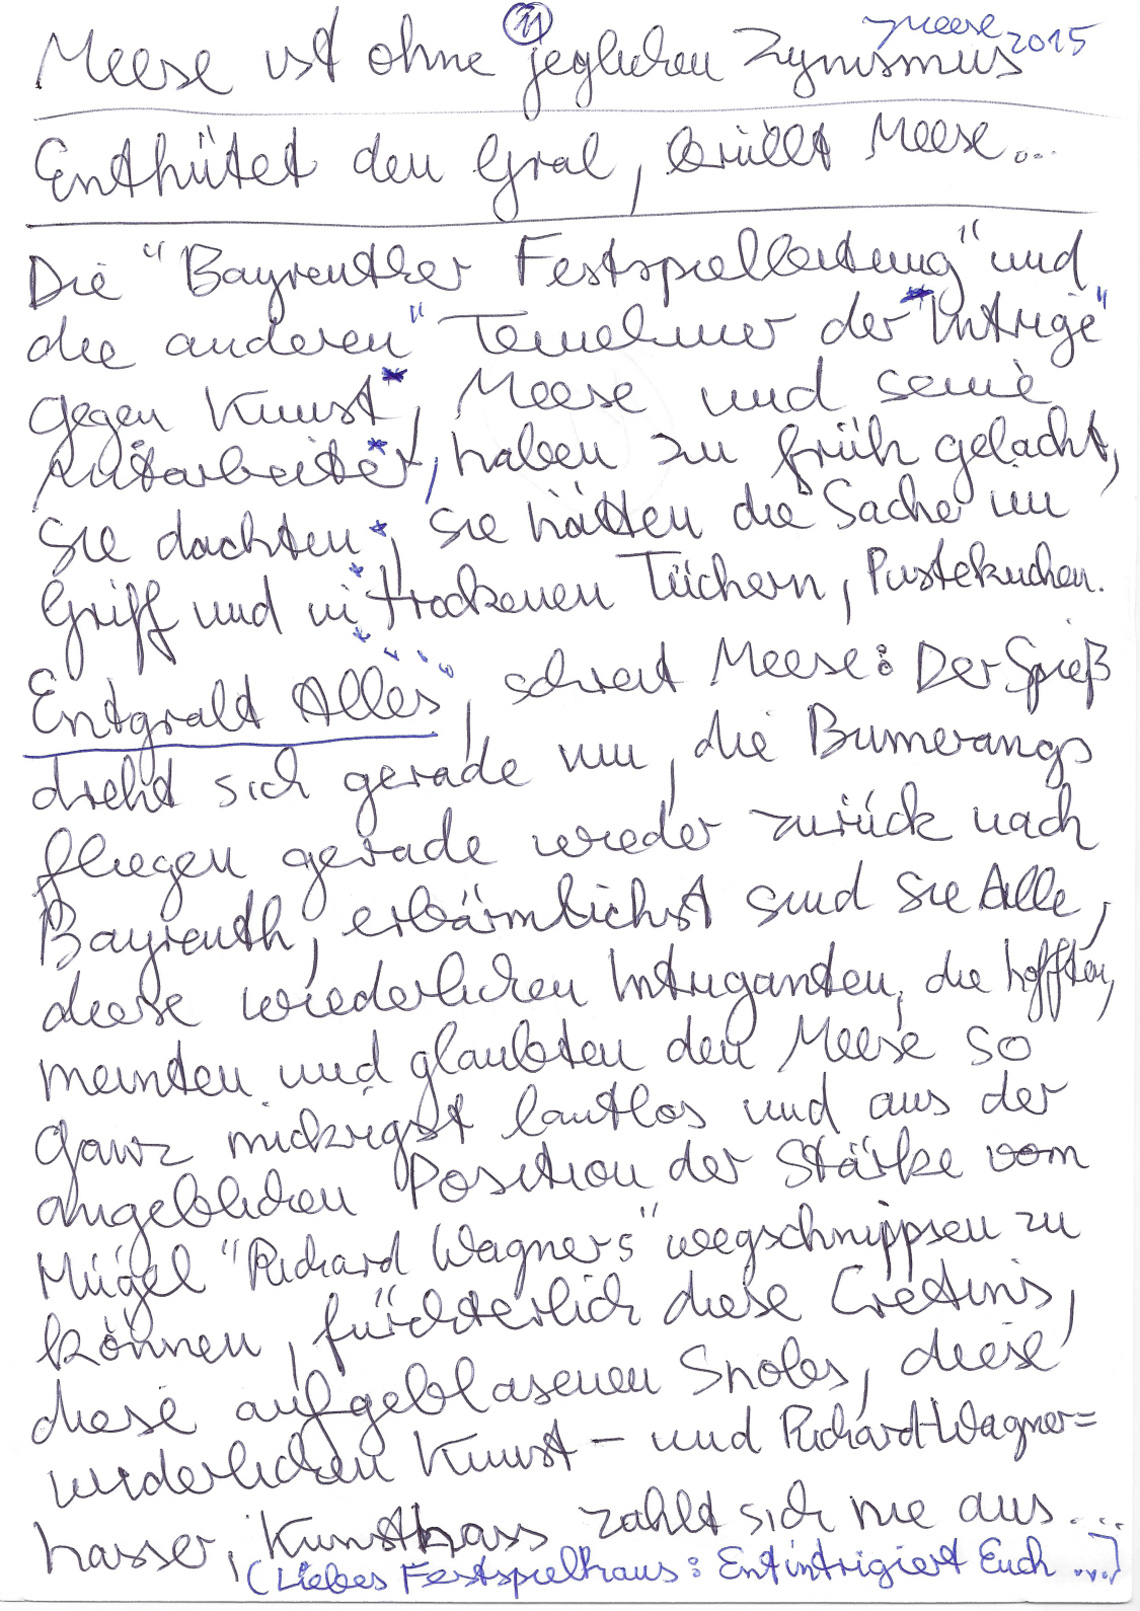 11
JMeese 2015
Meese ist ohne jeglichen Zynismus
Enthütet den Gral, brüllt Meese...
Die "Bayreuther Festspielleitung" und
die anderen "Teinehmer der "Intrige"
gegen Kunst, Meese und seine
Mitarbeiter, haben zu früh gelacht,
Sie dachten, sie hätten die Sache im
Griff und in trockenen Tüchern, Pustekuchen.
"Entgralt Alles", schreit Meese: Der Spieß
dreht sich gerade um, die Bumerangs
fliegen gerade wieder zurück nach
Bayreuth, erbärmlichst sind sie Alle,
diese wiederlichen Intriganten, die hofften,
meinten und glaubten den Meese so
ganz mickrigst lautlos und aus der
angeblichen Position der Stärke vom
Hügel "Richard Wagners" wegschnippsen zu
können, fürchterlich diese Cretins,
diese aufgeblasenen Snobs, diese
widerlichen Kunst- und Richard-Wagner=
hasser, Kunsthass zahlt sich nie aus...
(Liebes Festspielhaus: Entintrigiert Euch ...)